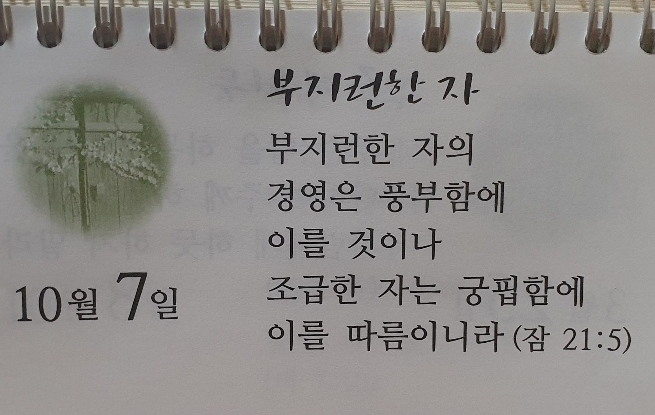 부지런한 자
부지런한 자의
경영은 풍부함에
이를 것이나
조급한 자는 궁핍함에
이를 따름이니라 (잠 21:5)
10월 7일